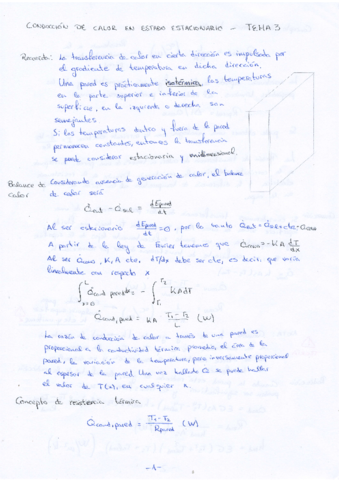 CONDUCCIÓN DE CALOR EN ESTADO ESTACIONARIO - TEMA 3
Recuerda: La transferencia de calor en cierta dirección es impulsada por
el gradiente de temperatura en dicha dirección.
Una pared es prácticamente isotérmica, las temperaturas
en la parte superior e inferior de la
superficie, en la izquierda o derecha son
semejantes
Si las temperaturas dentro y fuera de la pared
permanecen constantes, entonces la transferencia
se puede considerar estacionaria y unidimensional.
Balance de Considerando ausencia de generación de calor, el balance
calor de calor será
Q̇ent - Q̇sal = dEpared/dt
Al ser estacionario dEpared/dt = 0, por lo tanto Q̇ent = Q̇sal = cte = Q̇cond
A partir de la Ley de Fourier tenemos que Q̇cond = -kA dT/dx
Al ser Q̇cond, K, A cte, dT/dx debe ser cte, es decir, que varía
linealmente con respecto x
∫ₓ₌₀ᴸ Q̇cond,pared dx = - ∫T₁ᵀ² kA dT
Q̇cond,pared = kA (T₁ - T₂)/L (W)
La razón de conducción de calor a través de una pared es
proporcional a la conductividad térmica promedio, el área de la
pared, la variación de la temperatura, pero inversamente proporcional
al espesor de la pared. Una vez hallado Q̇ se puede hallar
el valor de T(x), en cualquier x.
Concepto de resistencia térmica
Q̇cond,pared = (T₁ - T₂)/Rpared (W)
-1-